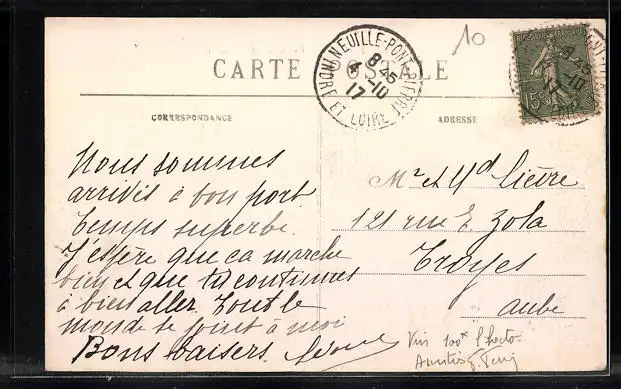 10
CARTE POSTALE
NEUILLE-PONT-PIERRE
8 45
4-10
17
INDRE ET LOIRE
15c
CORRESPONDANCE
ADRESSE
Nous sommes
arrivés à bon port
temps superbe.
J'espère que ca marche
bien et que tu continues
à bien aller. Tout le
monde se joint à moi
Bons baisers.
Mr et Md Lièvre
121 rue E Zola
Troyes
Aube